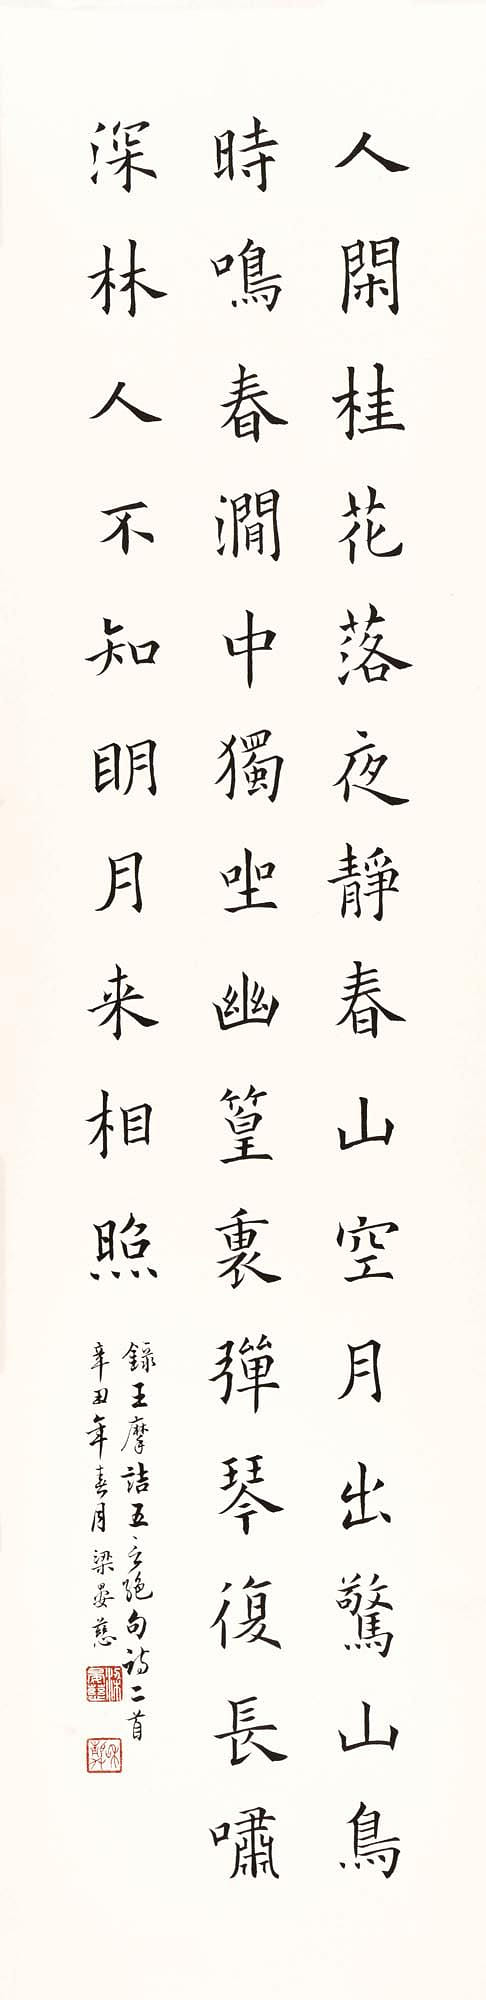 人閑桂花落夜靜春山空月出驚山鳥
時鳴春澗中獨坐幽篁裏彈琴復長嘯
深林人不知明月来相照
錄王摩詰五言絕句詩二首
辛丑年春月梁晏慈